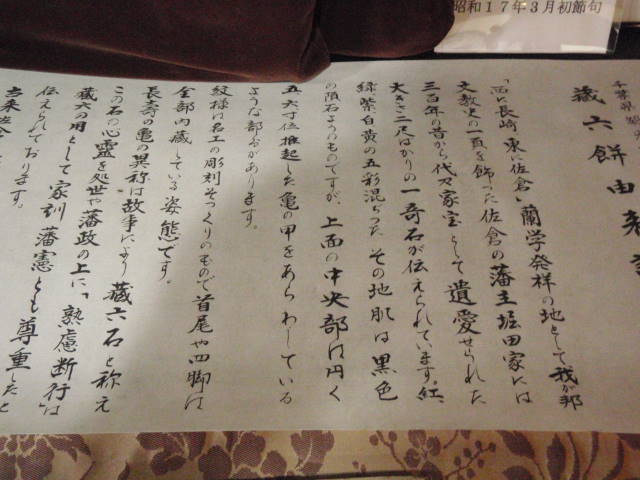 昭和17年3月初節句
千葉県
蔵六餅由
「西に長崎、東に佐倉」蘭学発祥の地として我が邦
文教史の一頁を飾った佐倉の藩主堀田家には
三百年の昔から代々家宝として遺愛せられた
大きさ二尺ばかりの一奇石が伝えられています。紅、
緑、紫白黄の五彩混ぢった その地肌は黒色
の隕石ようのものですが、上面の中央部は円く
五、六寸位推起した亀の甲をあらわしている
ような部分があります。
紋様は名工の彫刻そっくりのもので首尾や四脚は
全部内蔵している姿態です。
長寿の亀の異称は故事により蔵六石と称え
この石の心霊を処世や藩政の上に「熟慮断行」は
蔵六の用として家訓、藩憲とも尊重したと
伝えられております。